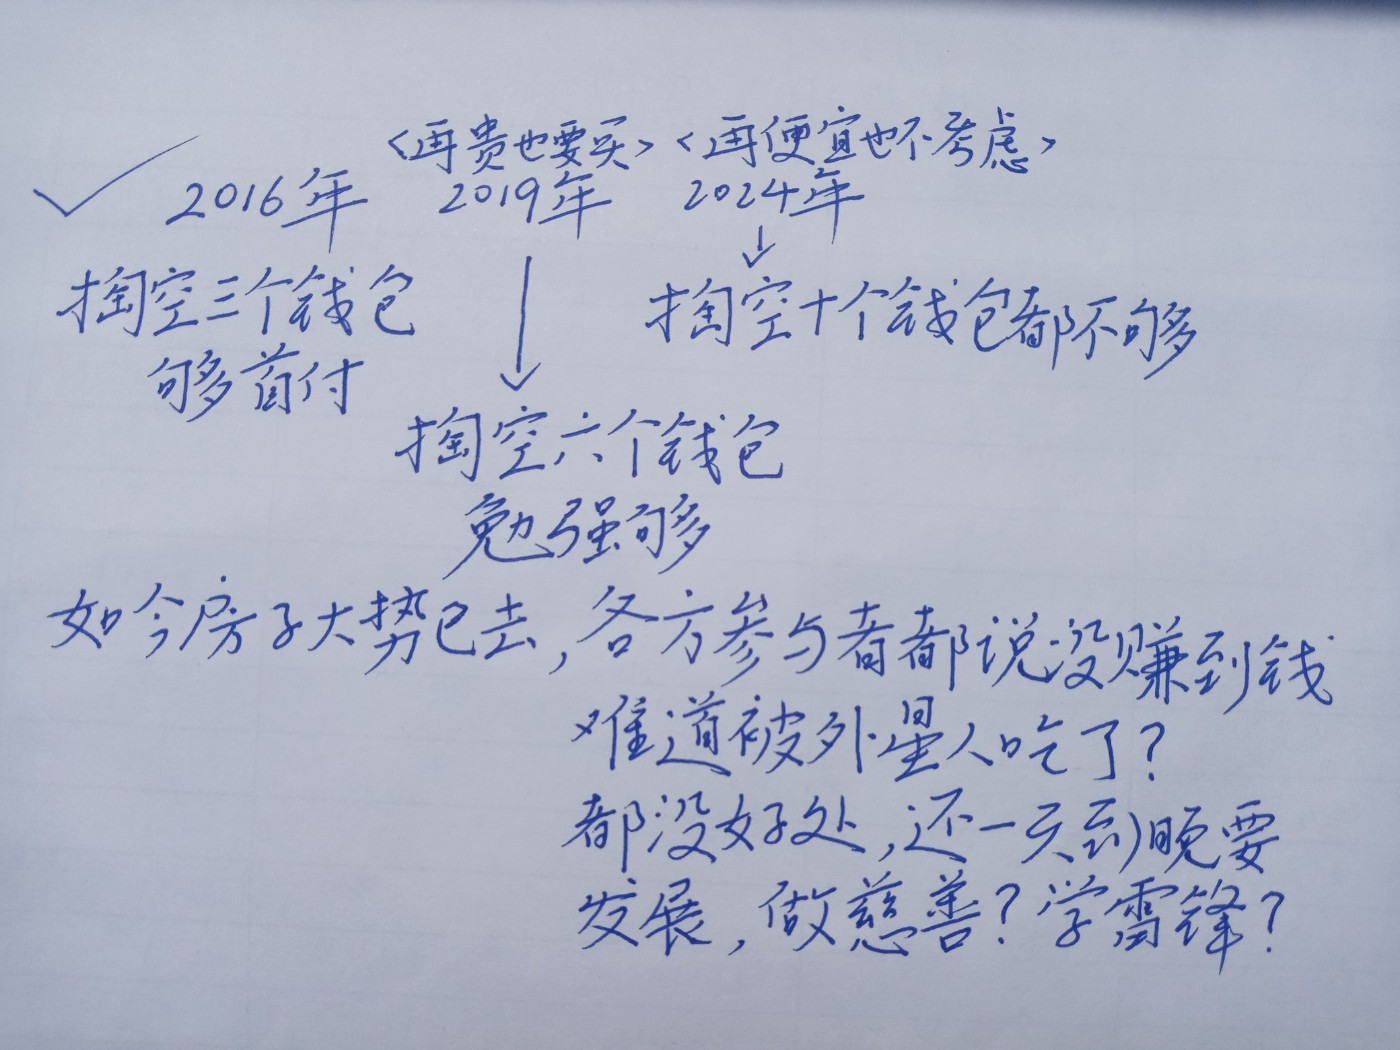 <再贵也要买> <再便宜也不考虑>
2016年 2019年 2024年
掏空三个钱包
够首付
掏空十个钱包都不够
掏空六个钱包
勉强够
如今房子大势已去,各方参与者都说没赚到钱
难道被外星人吃了?
都没好处,还一天到晚要
发展,做慈善?学雷锋?